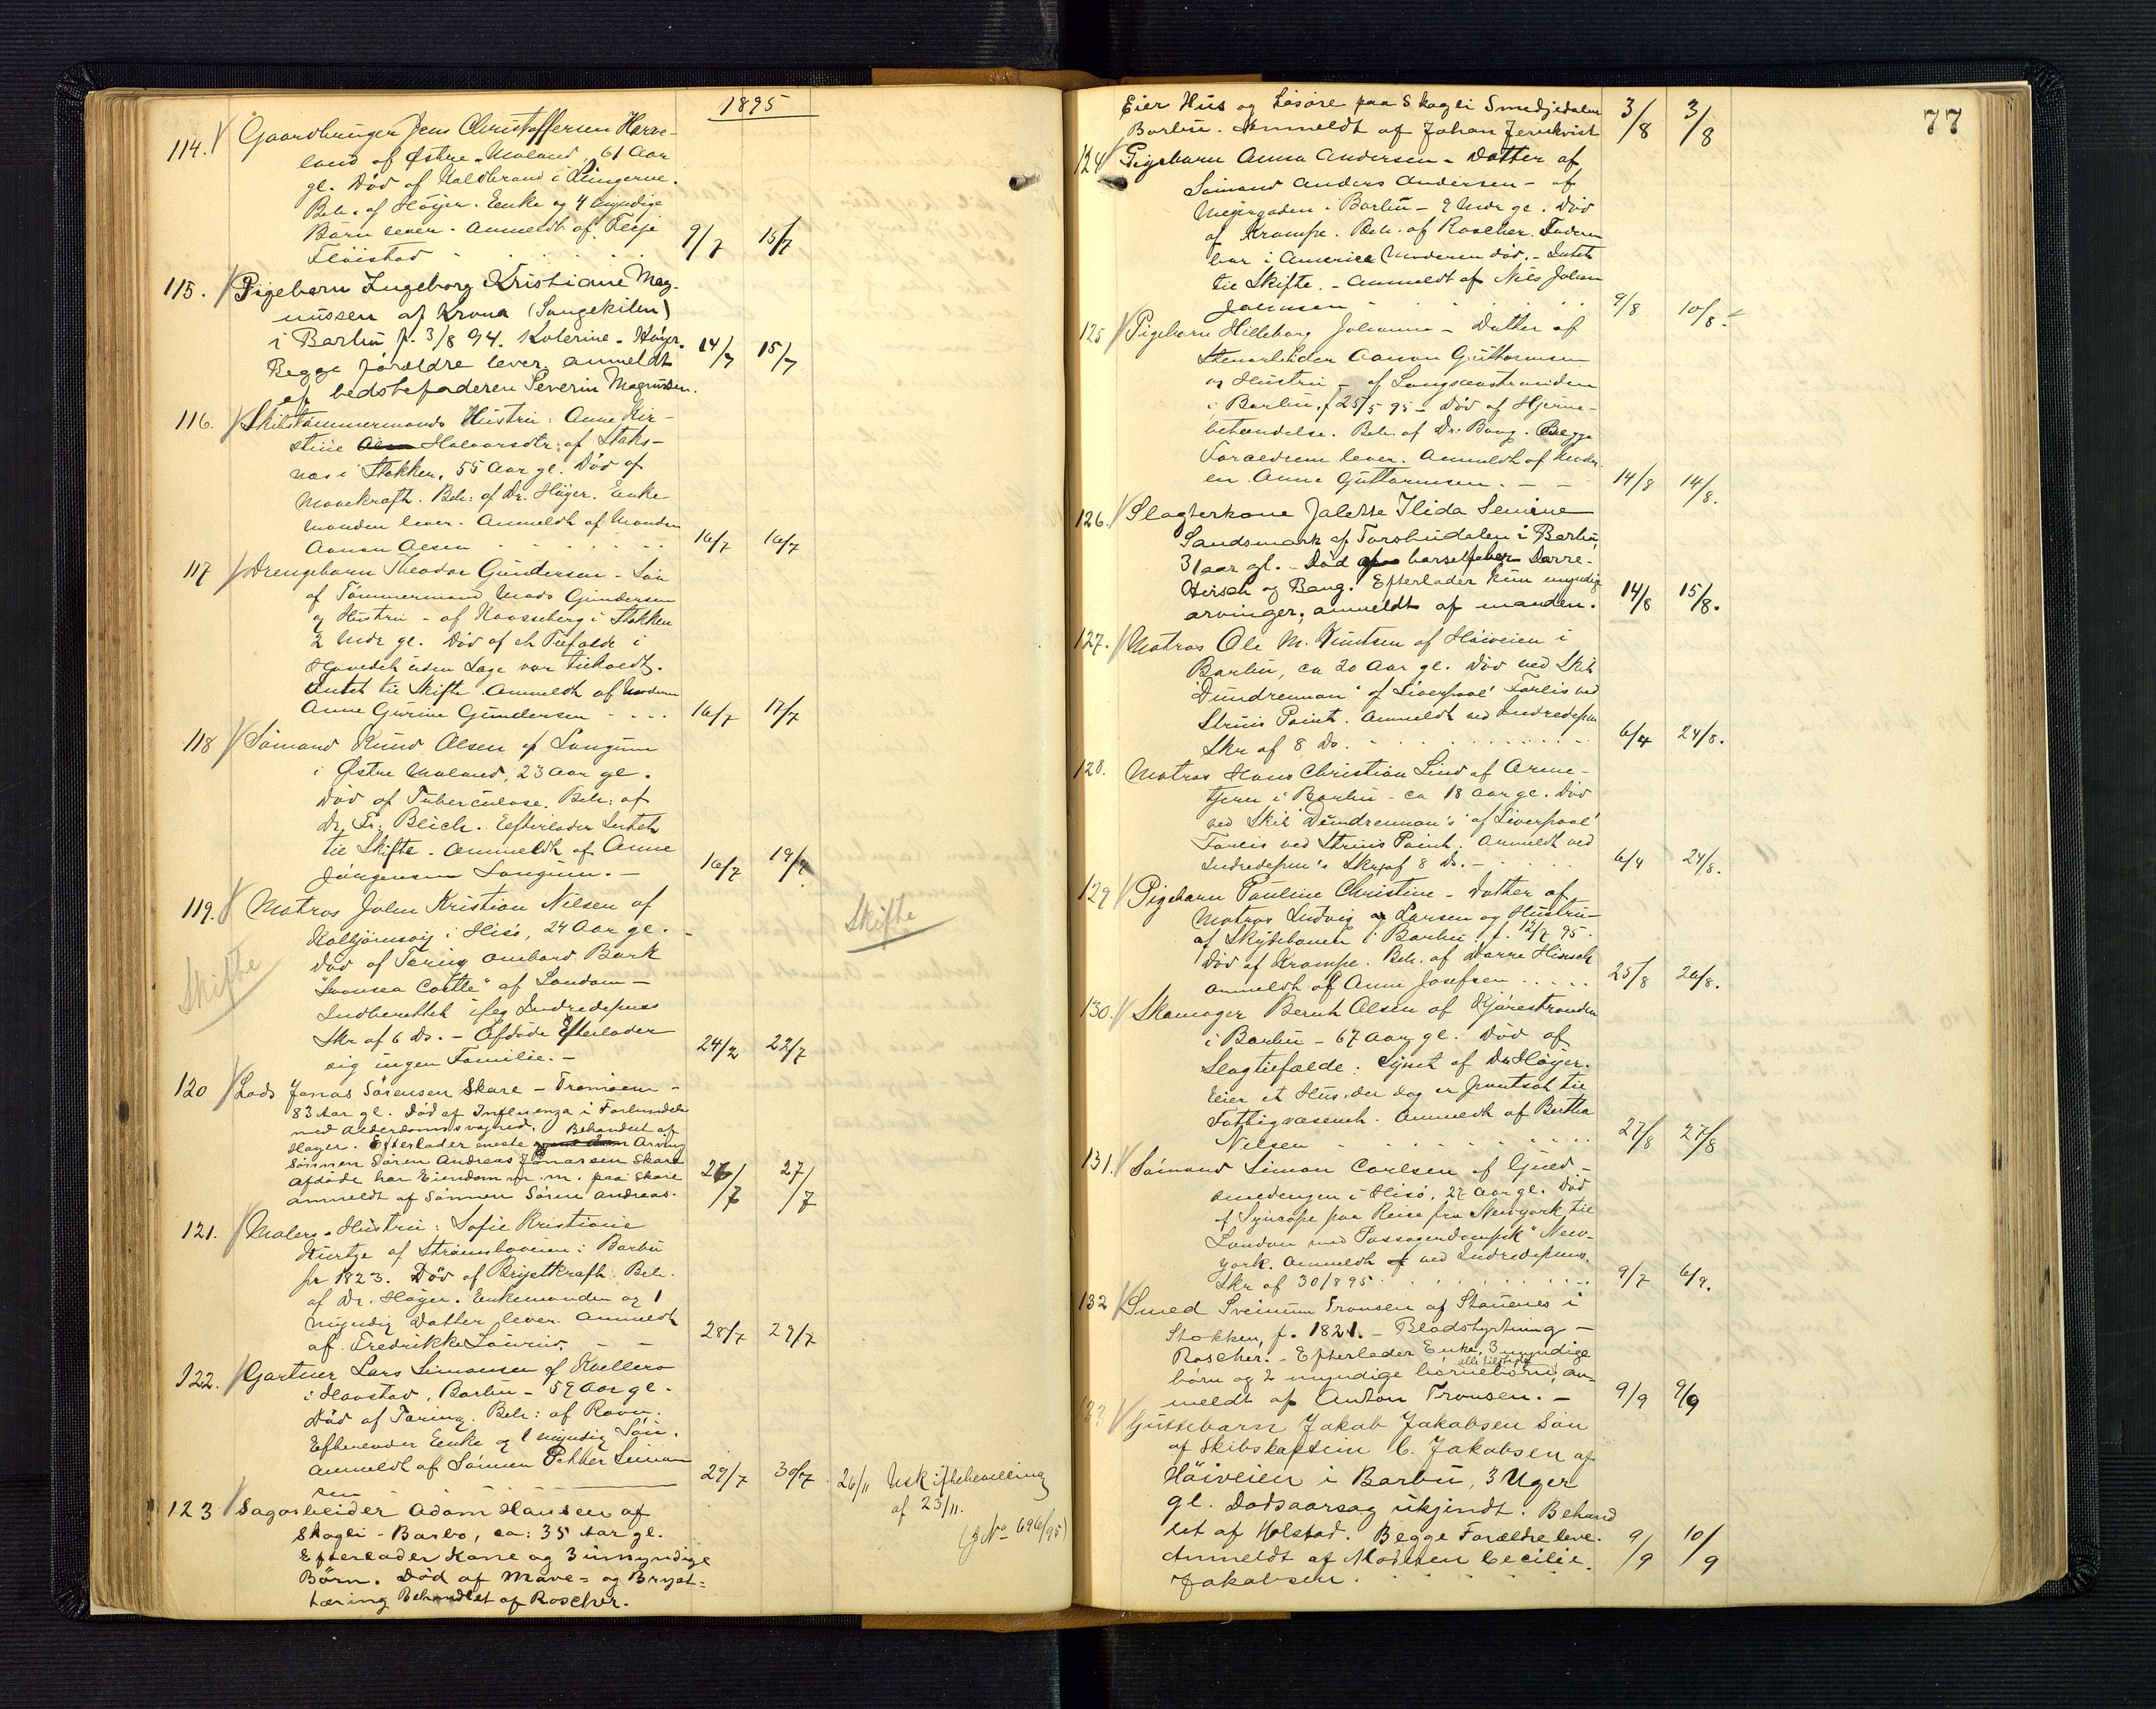 1895
114. Gaardbruger Jens Christoffersen Herve-
land af Østre-Moland, 61 Aar
gl. Død af Koldbrand i
Beh. af Høyer. Enke og 4 myndige
Børn lever. Anmeldt af Terje
Fløistad . . . . . 9/7 15/7
115. Pigebarn Ingeborg Kristiane Mag-
nussen af Krona (Songekilen)
i Barbu f. 3/8 94. Kolerine. Høyer.
Begge forældre lever, anmeldt
af bedstefaderen Severin Magnussen. 14/7 15/7
116. Skibstømmermands Hustru: Anne Kir-
stine Halvorsdtr: af Staks-
næs i Stokken, 55 Aar gl. Død af
Mavekræft. Beh: af Dr. Høyer. Enke
manden lever. Anmeldt af Manden
Aanon Olsen . . . . . 16/7 16/7
117 Drengebarn Theodor Gundersen - Søn
af Tømmermand Mads Gundersen
og Hustru - af Kaasseberg i Stokken
2 Mdr gl. Død af et Tilfælde i
Hovedet uden Læge var tilkaldt.
Intet til Skifte. Anmeldt af Moderen
Anne Gurine Gundersen . . . . 16/7 17/7
118 Sømand Knud Olsen af Longum
i Østre Moland, 23 Aar gl.
Død af Tuberculose. Beh: af
Dr. Fr. Blich. Efterlader Intet
til Skifte. Anmeldt af Anne
Jørgensen Longum. - 16/7 19/7
119. Matros John Kristian Nilsen af
Kolbjørnsvig i Hisø, 24 Aar gl. -
Død af Tæring ombord Bark
"Swansea Castle" af London -
Indberettet ifølg Indredepnts
Skr af 6 Ds. - Afdøde Efterlader
sig ingen Familie. - 24/2 22/7
Skifte
Skifte
120 Lods Jonas Sørensen Skare - Tromøen -
83 Aar gl. Død af Influenza i Forbindelse
med Alderdomssvaghed. Behandlet af
Høyer. Efterlader eneste Arving
Sønnen Søren Andreas Jonassen Skare
Afdøde har Eiendom m. m. paa Skare
anmeldt af Sønnen Søren Andreas. 26/7 27/7
121. Malers Hustru: Sofie Kristiane
Kurtze af Strømsboveien i Barbu
f 1823. Død af Brystkræft. Beh.
af Dr. Høyer. Enkemanden og 1
myndig Datter lever. Anmeldt
af Fredrikke - - 28/7 29/7
122. Gartner Lars Simonsen af
i Havstad, Barbu - 59 Aar gl.
Død af Tæring. Beh: af Ravn.
Efterlader Enke og 1 myndig Søn.
Anmeldt af Sønnen Petter Simon
sen 29/7 30/7 26/11 Uskiftebevilling
af 23/11.
(J No 696/95)
123 Sagarbeider Adam Hansen af
Skogli - Barbo, ca: 35 Aar gl.
Efterlader Kone og 3 umyndige
Børn. Død af Mave= og Bryst=
tæring Behandlet af Roscher.
77
Eier Hus og Løsøre paa Skogli Smedjedalen
Barbu. Anmeldt af Johan Jernkvist 3/8 3/8
124 Pigebarn Anna Andersen - Datter af
Sømand Anders Andersen - af
Meyergaden i Barbu - 9 Mdr gl. Død
af Krampe. Beh. af Roscher. Faderen
bor i America Moderen død. - Intet
til Skifte. - Anmeldt af Nils Johan
Johnsen . . . . . 9/8 10/8.
125 Pigebarn Hilleborg Johanne - Datter af
Stenarbeider Aanon Guttormsen
og Hustru - af Langsæstranden
i Barbu, f 25/5 95 - Død af Hjerne-
betændelse. Beh. af Dr. Bang. Begge
Forældrene lever. Anmeldt af Moder-
en Anne Guttormsen. - - 14/8 14/8.
126. Slagterkone Jalette Ilida Semine
Sandsmark af Torsbudalen i Barbu,
31 aar gl. - Død af barselfeber Darre-
Hirsch og Bang. Efterlader kun umyndig
arvinger; anmeldt af manden. 14/8 15/8.
127. Matros Ole M. Knutsen af Høiveien i
Barbu, ca 20 Aar gl. Død ved Skib
"Dundrennan" af Liverpool' Forlis ved
Struis Point. Anmeldt ved Indredepnts
Skr af 8 ds. . . . . . 6/4 24/8.
128. Matros Hans Christian Lind af Arne-
tjern i Barbu - ca 18 Aar gl. Død
ved Skib "Dundrennan's" af Liverpool'
Forlis ved Struis Point. Anmeldt ved
Indredepnt's Skr af 8 ds. - 6/4 24/8.
129 Pigebarn Pauline Christine - Datter af
Matros Ludvig Larsen og Hustru -
af Skydebanen i Barbu. f. 12/7 95.
Død af Krampe. Beh. af Darre Hirsch
Anmeldt af Anne Josefsen . . . . . 25/8 26/8.
130. Skomager Bernt Olsen af Kjørestranden
i Barbu - 67 Aar gl. Død af
Slagtilfælde. Synet af Dr Høyer.
Eier et Hus, der dog er pantsat til
Fattigvæsenet. Anmeldt af Bertha
Nilsen . . . . . 27/8 27/8
131. Sømand Simon Carlsen af Guld-
smedengen i Hisø, 27 Aar gl. Død
af Syncope paa Reise fra Newyork til
London med Passagerdampsk. "New-
york. Anmeldt ved Indredepnts.
Skr af 30/8 95 . . . . . 9/7 6/9.
132 Smed Sveinum Tronsen af Stauenes i
Stokken, f. 1821. - Blodstyrtning -
Roscher. - Efterlader Enke, 3 myndige
børn og 2 myndige børnebørn, an-
meldt af Anton Tronsen. - 9/9 9/9
133 Guttebarn Jakob Jakobsen Søn
af Skibskaptein C. Jakobsen af
Høiveien i Barbu, 3 Uger
gl. Dødsaarsag ukjendt. Behand
let af Holstad. Begge Forældre leve.
Anmeldt af Moderen Cecilie
Jakobsen. . . . . 9/9 10/9